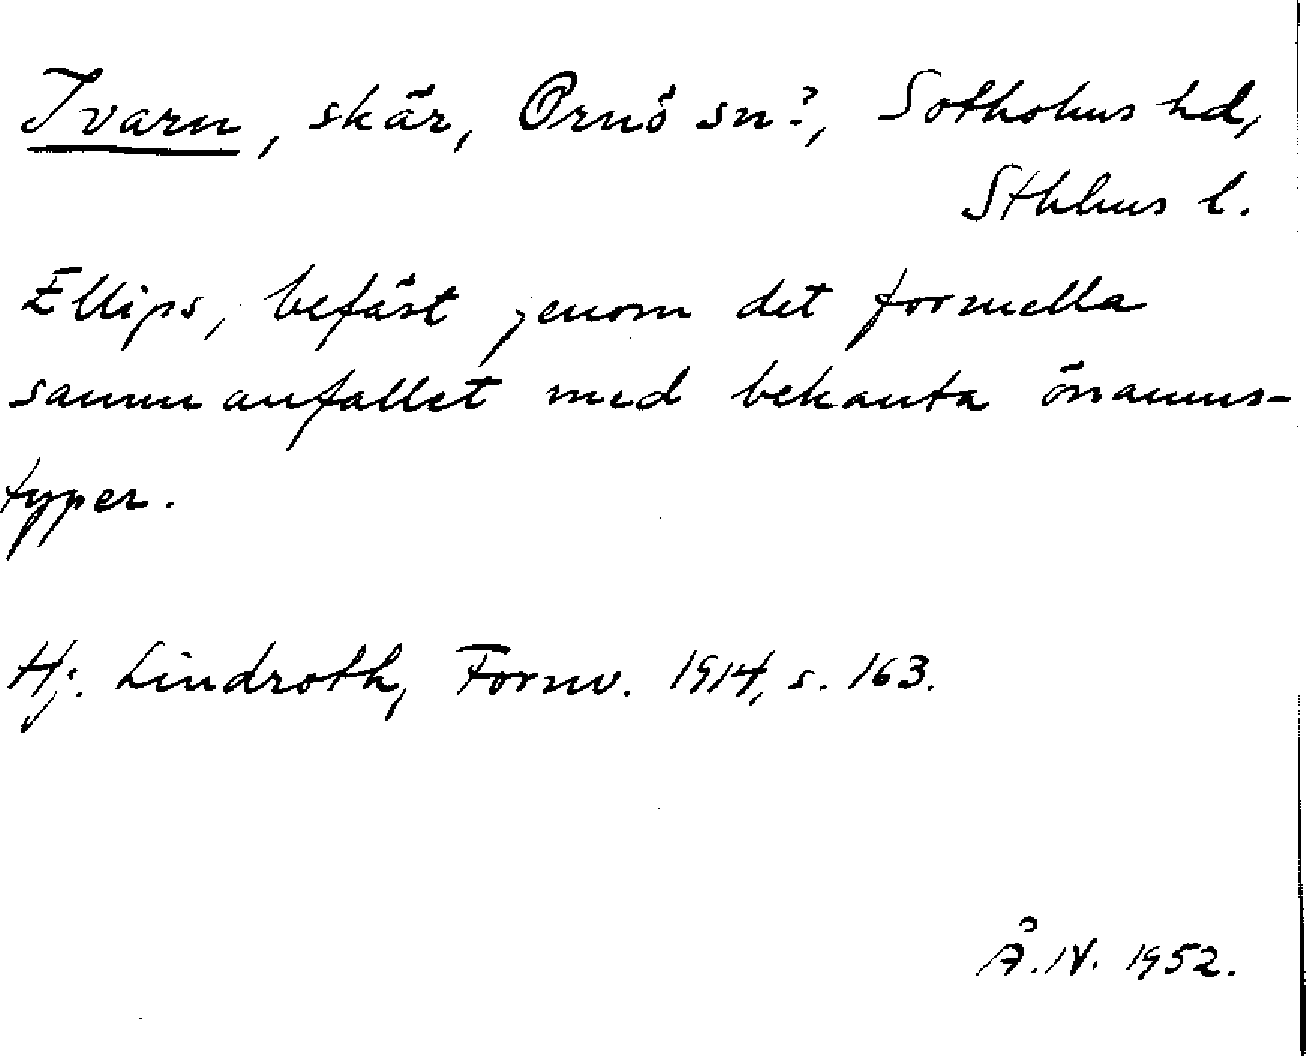 Ivarn, skär, Ornö sn?, Sotholms hd,
Sthlms l.
Ellips, befäst genom det formella
sammanfallet med bekanta önamns-
typer.
Hj. Lindroth, Fornv. 1914, s. 163.
Å.N. 1952.